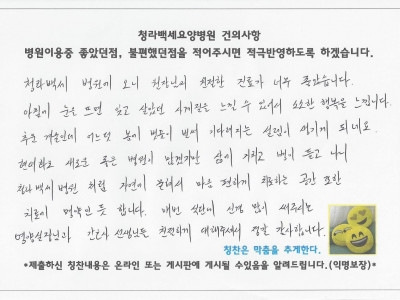 청라백세요양병원 건의사항
병원이용중 좋았던점, 불편했던점을 적어주시면 적극반영하도록 하겠습니다.
청라백세 병원에 오니 원장님의 친절한 진료가 너무 좋았습니다.
아침에 눈을 뜨면 잊고 살았던 사계절을 느낄 수 있어서 소소한 행복을 느낍니다.
추운 겨울인데 어느덧 봄이 기다려지는 설렘이 생기게 되네요.
새로운 좋은 병원이 많겠지만 삶이 지치고 병이 들고 나니
청라백세병원 처럼 자연이 마음 편하게 치료하는 공간 또한
치료의 명약인 듯 합니다. 매번 식단에 신경 많이 써주시는
영양실장님과 간호사 선생님들 친절하게 대해주셔서 정말 감사합니다.
칭찬은 막춤을 추게한다.
*제출하신 칭찬내용은 온라인 또는 게시판에 게시될 수있음을 알려드립니다.(익명보장)*